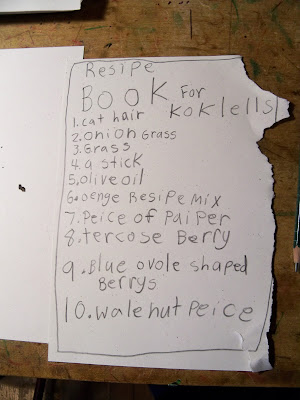 Resipe
BOOK For
Koklells
1. cat hair
2. onion Grass
3. Grass
4. a stick
5. olive oil
6. oenge Resipe mix
7. Peice of Paiper
8. tercose Berry
9. Blue ovole shaped
Berrys
10. walehut peice